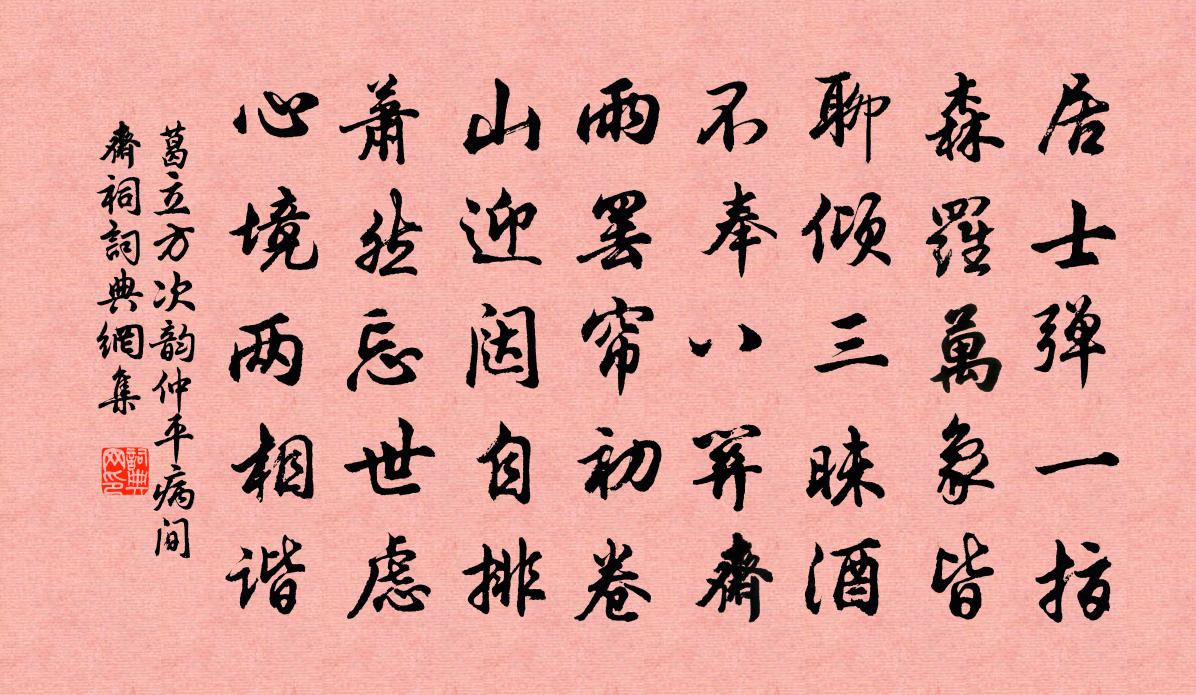 居士弹一指
森羅萬象皆
聊倾三昧酒
不奉八關齋
雨罢帘初卷
山迎闼自排
蕭然忘世虑
心境两相谐
葛立方次韵仲平病间
齋祠詞典網集
詞典
网印